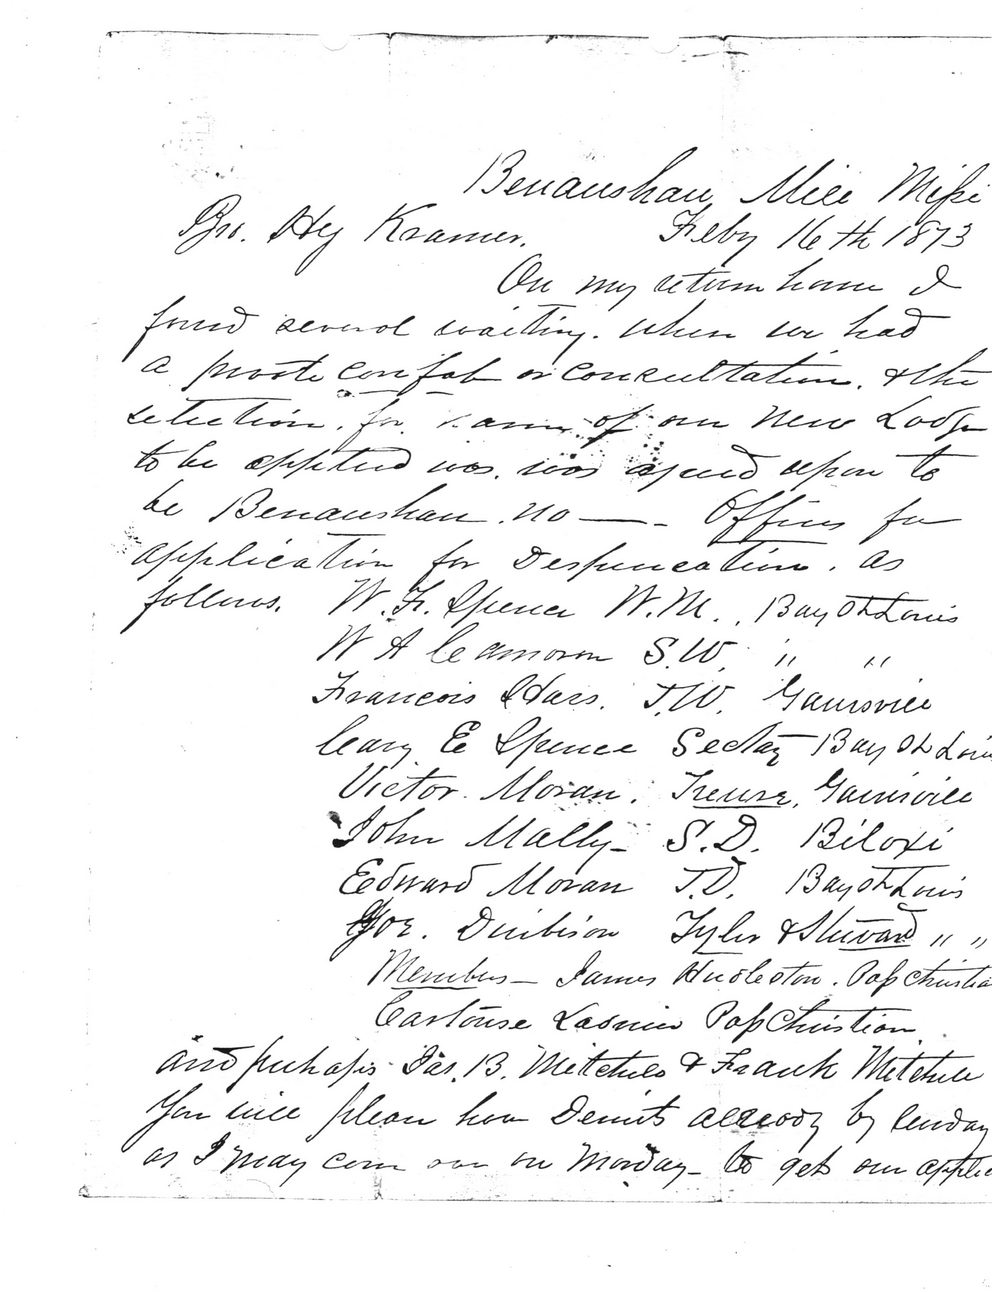 Benaushau, Mill Missi
Bro. Hy Kramer. Feby 16th 1873
On my return home I
found several waiting. when we had
a private confab or consultation. & the
selection. for name of our new Lodge
to be applied was. was agreed upon to
be Benaushau. no — . Officers for
application for Dispensation. as
follows. W. F. Spence W.M., Bay St Louis
W A Camoron S.W. " "
Francois Haas. J.W. Gainsvill
Cary E Spence Sectay Bay St Loui
Victor Moran. Treusr. Gainsville
John Mally - S.D. Biloxi
Edward Moran J.D. Bay St Louis
Joe. Tyler & Steward " "
Members - James Hudleston. Pass Christia
Lasnier Pass Christian
and perhaps Jas. B. Mitchell & Frank Mitchell
You will please have Demits already by Sunday
as I may come over on Monday - to get our applic